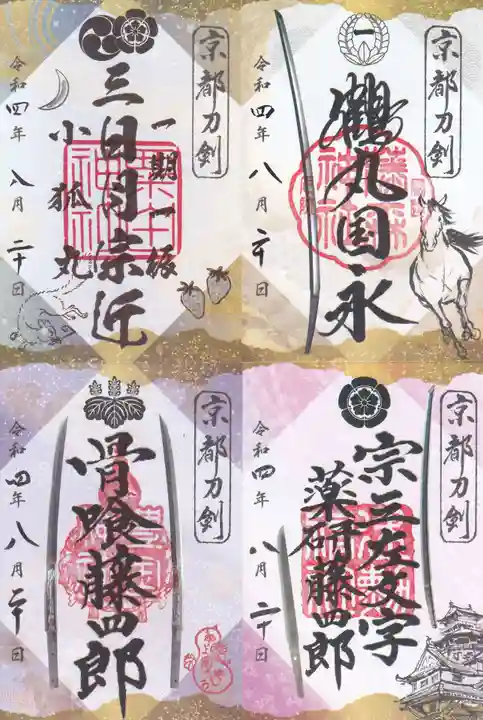 京都刀剣
一期一振
三日月宗近
小狐丸
令和四年八月二十日
粟田神社
京都刀剣
一
鶴丸国永
令和四年八月六日
藤森神社
京都刀剣
骨喰藤四郎
令和四年八月二十日
京都刀剣
宗三左文字
薬研藤四郎
令和四年八月二十日